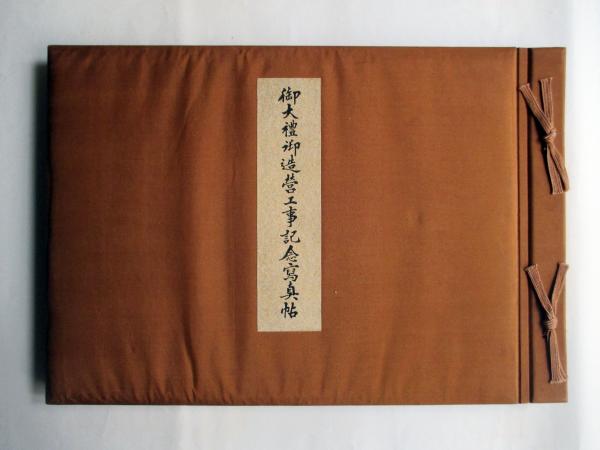 御大禮御造営工事記念寫真帖